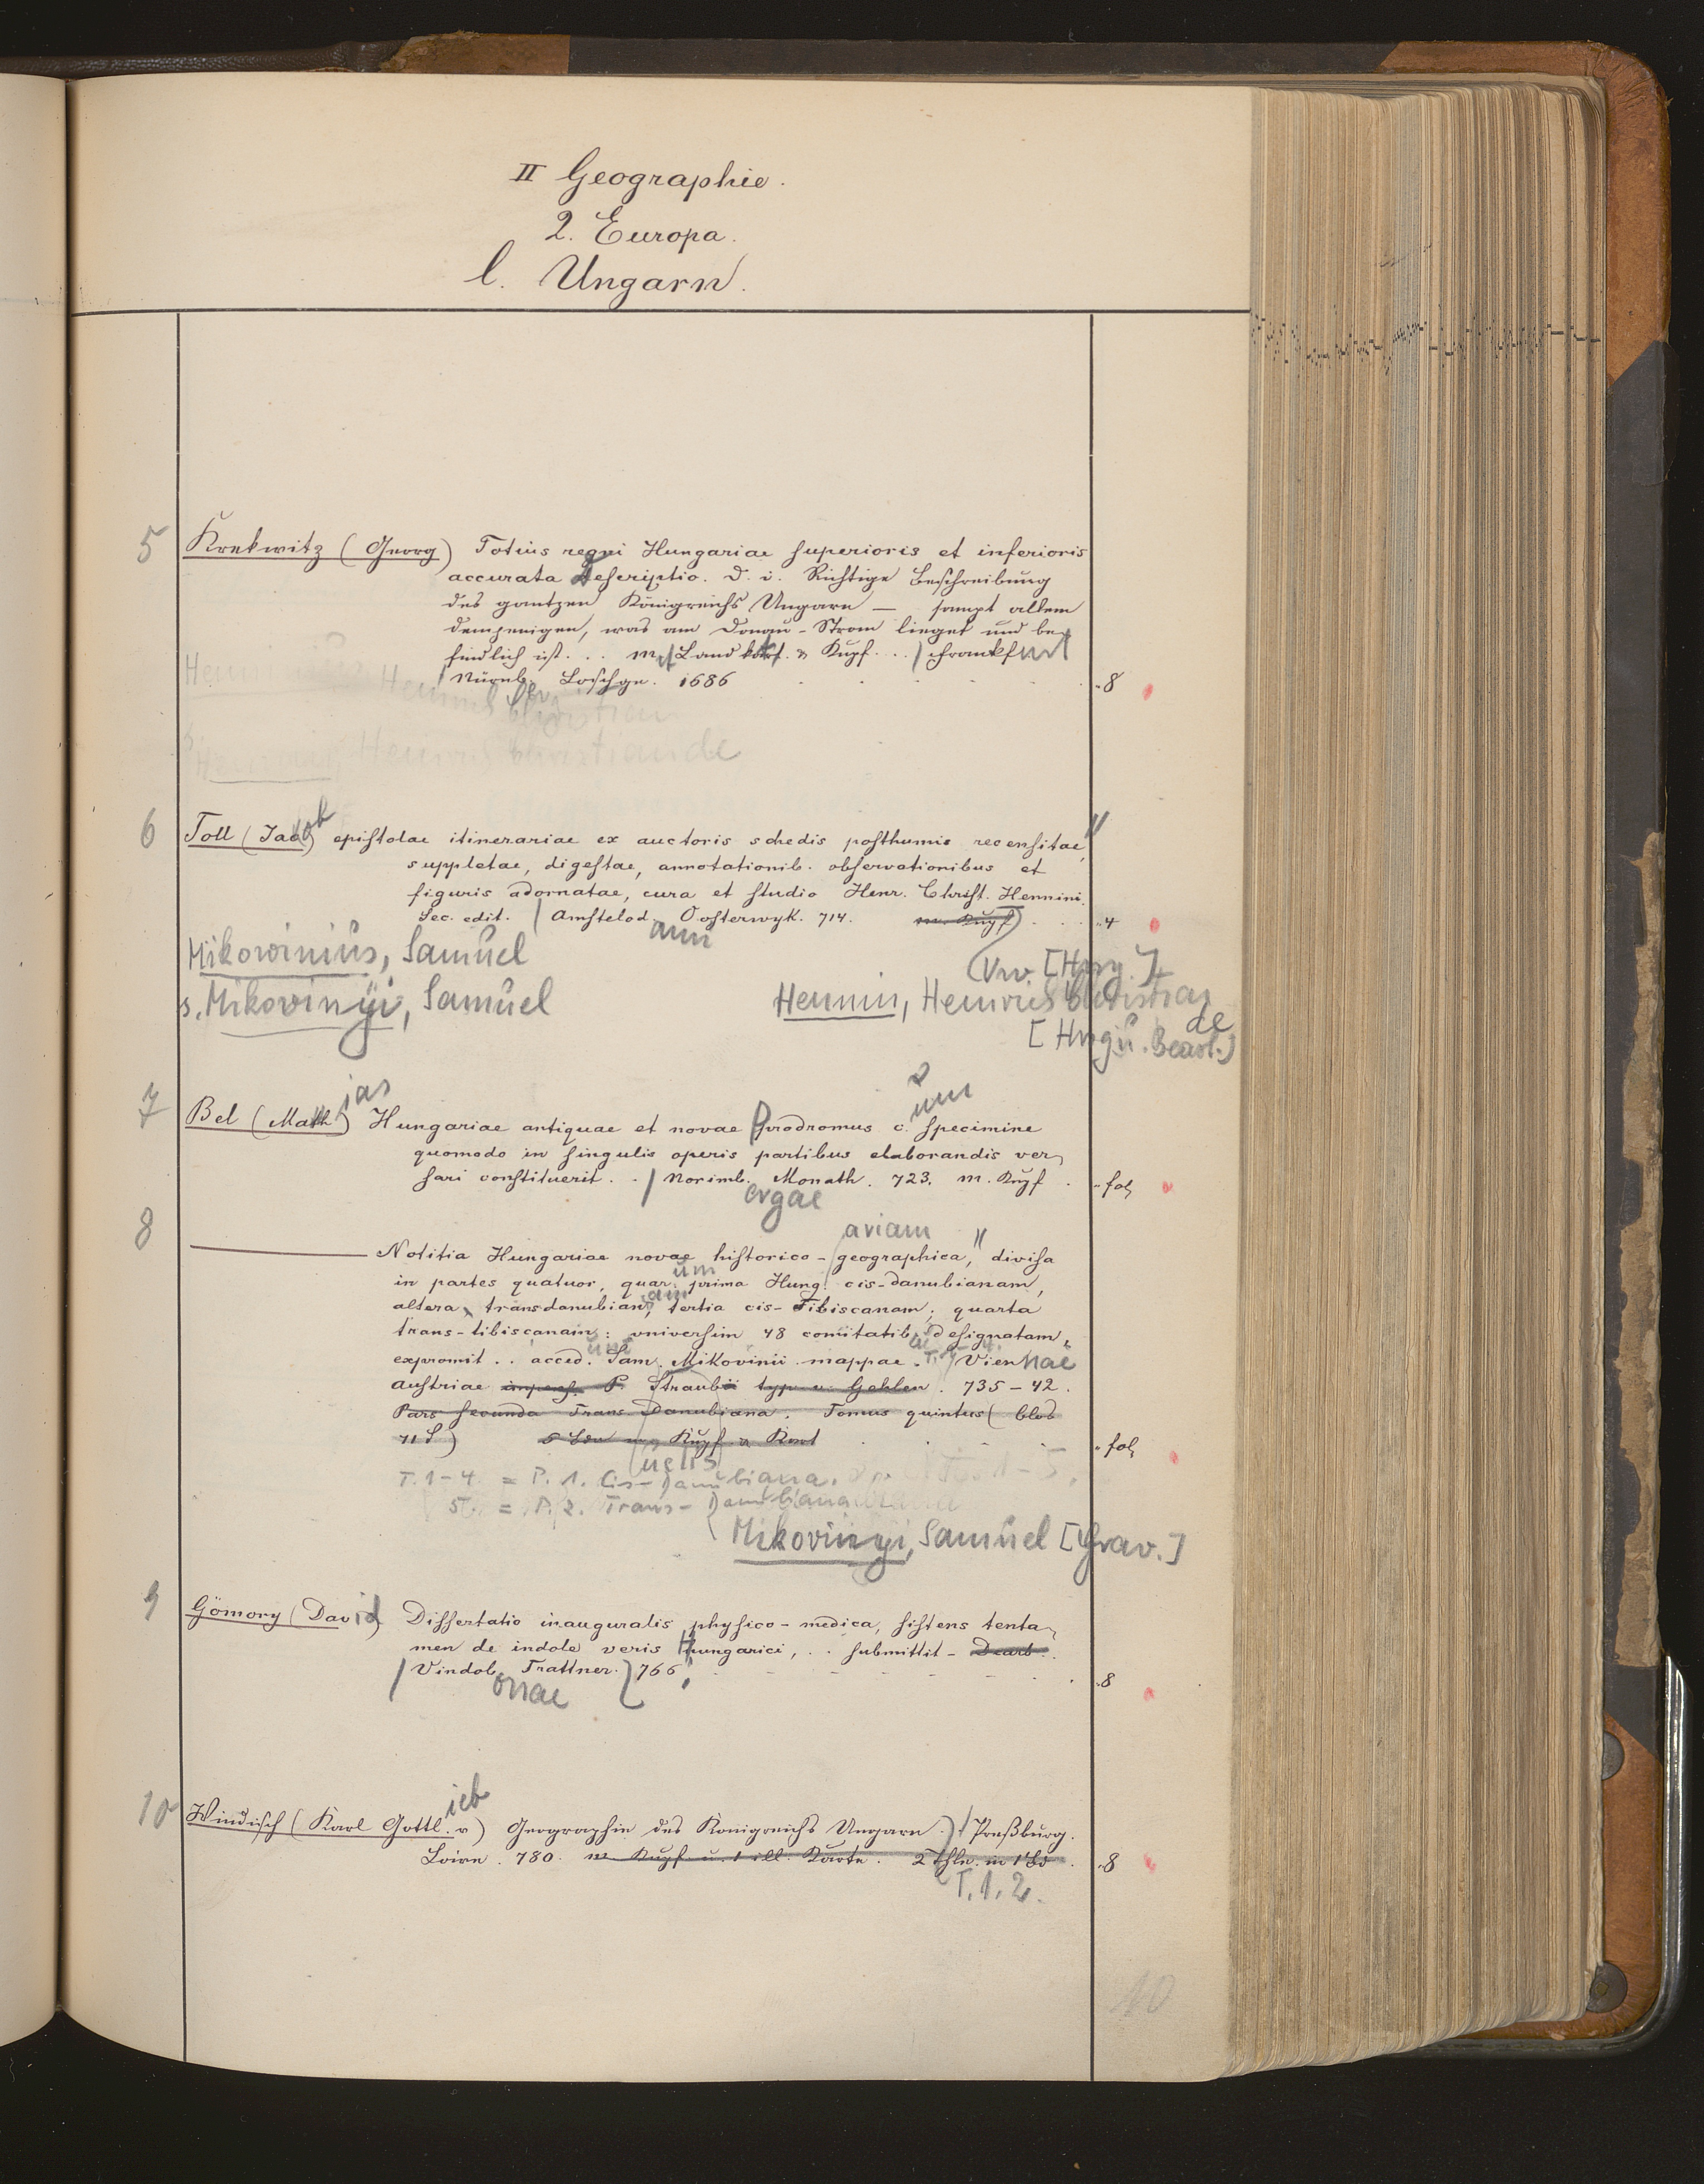 II Geographie.
2. Europa.
l. Ungarn.
5 Krekwitz (Georg) Totius regni Hungariae superioris et inferioris
accurata descriptio. D. i. Richtige Beschreibung
des gantzen Königreichs Ungarn — sampt allem
demjenigen, was am Donau-Strom lieget und be-
findlich ist. .. m. Land kart. & Kupf. .. / Frankfurt
Nürnb. Loschge. 1686 8
6 Toll (Jacob) epistolae itinerariae ex auctoris schedis posthumis recensitae,
suppletae, digestae, annotationib. observationibus et
figuris adornatae, cura et studio Henr. Christ. Hennini.
Sec. edit. / Amstelod. Oosterwyk. 714. m. Kupf. 4
ami
Mikowinius, Samuel
s. Mikovinyi, Samuel
Vw. [Hrsg.]
Hennin, Heinrich Christian
de
[Hrsg u. Bearb.]
ias
um
7 Bel (Math) Hungariae antiquae et novae Prodromus c. specimine
quomodo in singulis operis partibus elaborandis ver-
sari constituerit. . / Norimb. Monath. 723. m. Kupf. fol
ergae
ariam
8 — Notitia Hungariae novae historico-geographica, divisa
in partes quatuor, quar. prima Hung. cis-danubianam,
um
altera, transdanubian, tertia cis-Tibiscanam, quarta
am
trans-tibiscanam: universim 48 comitatib. designatam,
expromit .. acced. Sam. Mikovinii mappae. T. / Viennae
Austriae impens. P. Straubii typ. v. Gehlen. 735-42.
Pars secunda Trans Danubiana. Tomus quintus (blos
71 S) Kupf & Kart fol
uelis
T. 1-4 = P. 1. Cis-Danubiana.
5. = P. 2. Trans-Danubiana
Mikovinyi, Samuel [Grav.]
9 Gömory (David) Dissertatio inauguralis physico-medica, sistens tenta-
men de indole veris Hungarici, .. submittit -
/ Vindob. Trattner. 766 8
onae
ieb
10 Windisch (Karl Gottl. v) Geographie des Königreichs Ungarn. / Preßburg.
Loewe. 780. m Kupf u. 1 ill. Karte. 2 Thle. in 1 Bd. 8
T. 1. 2.
10